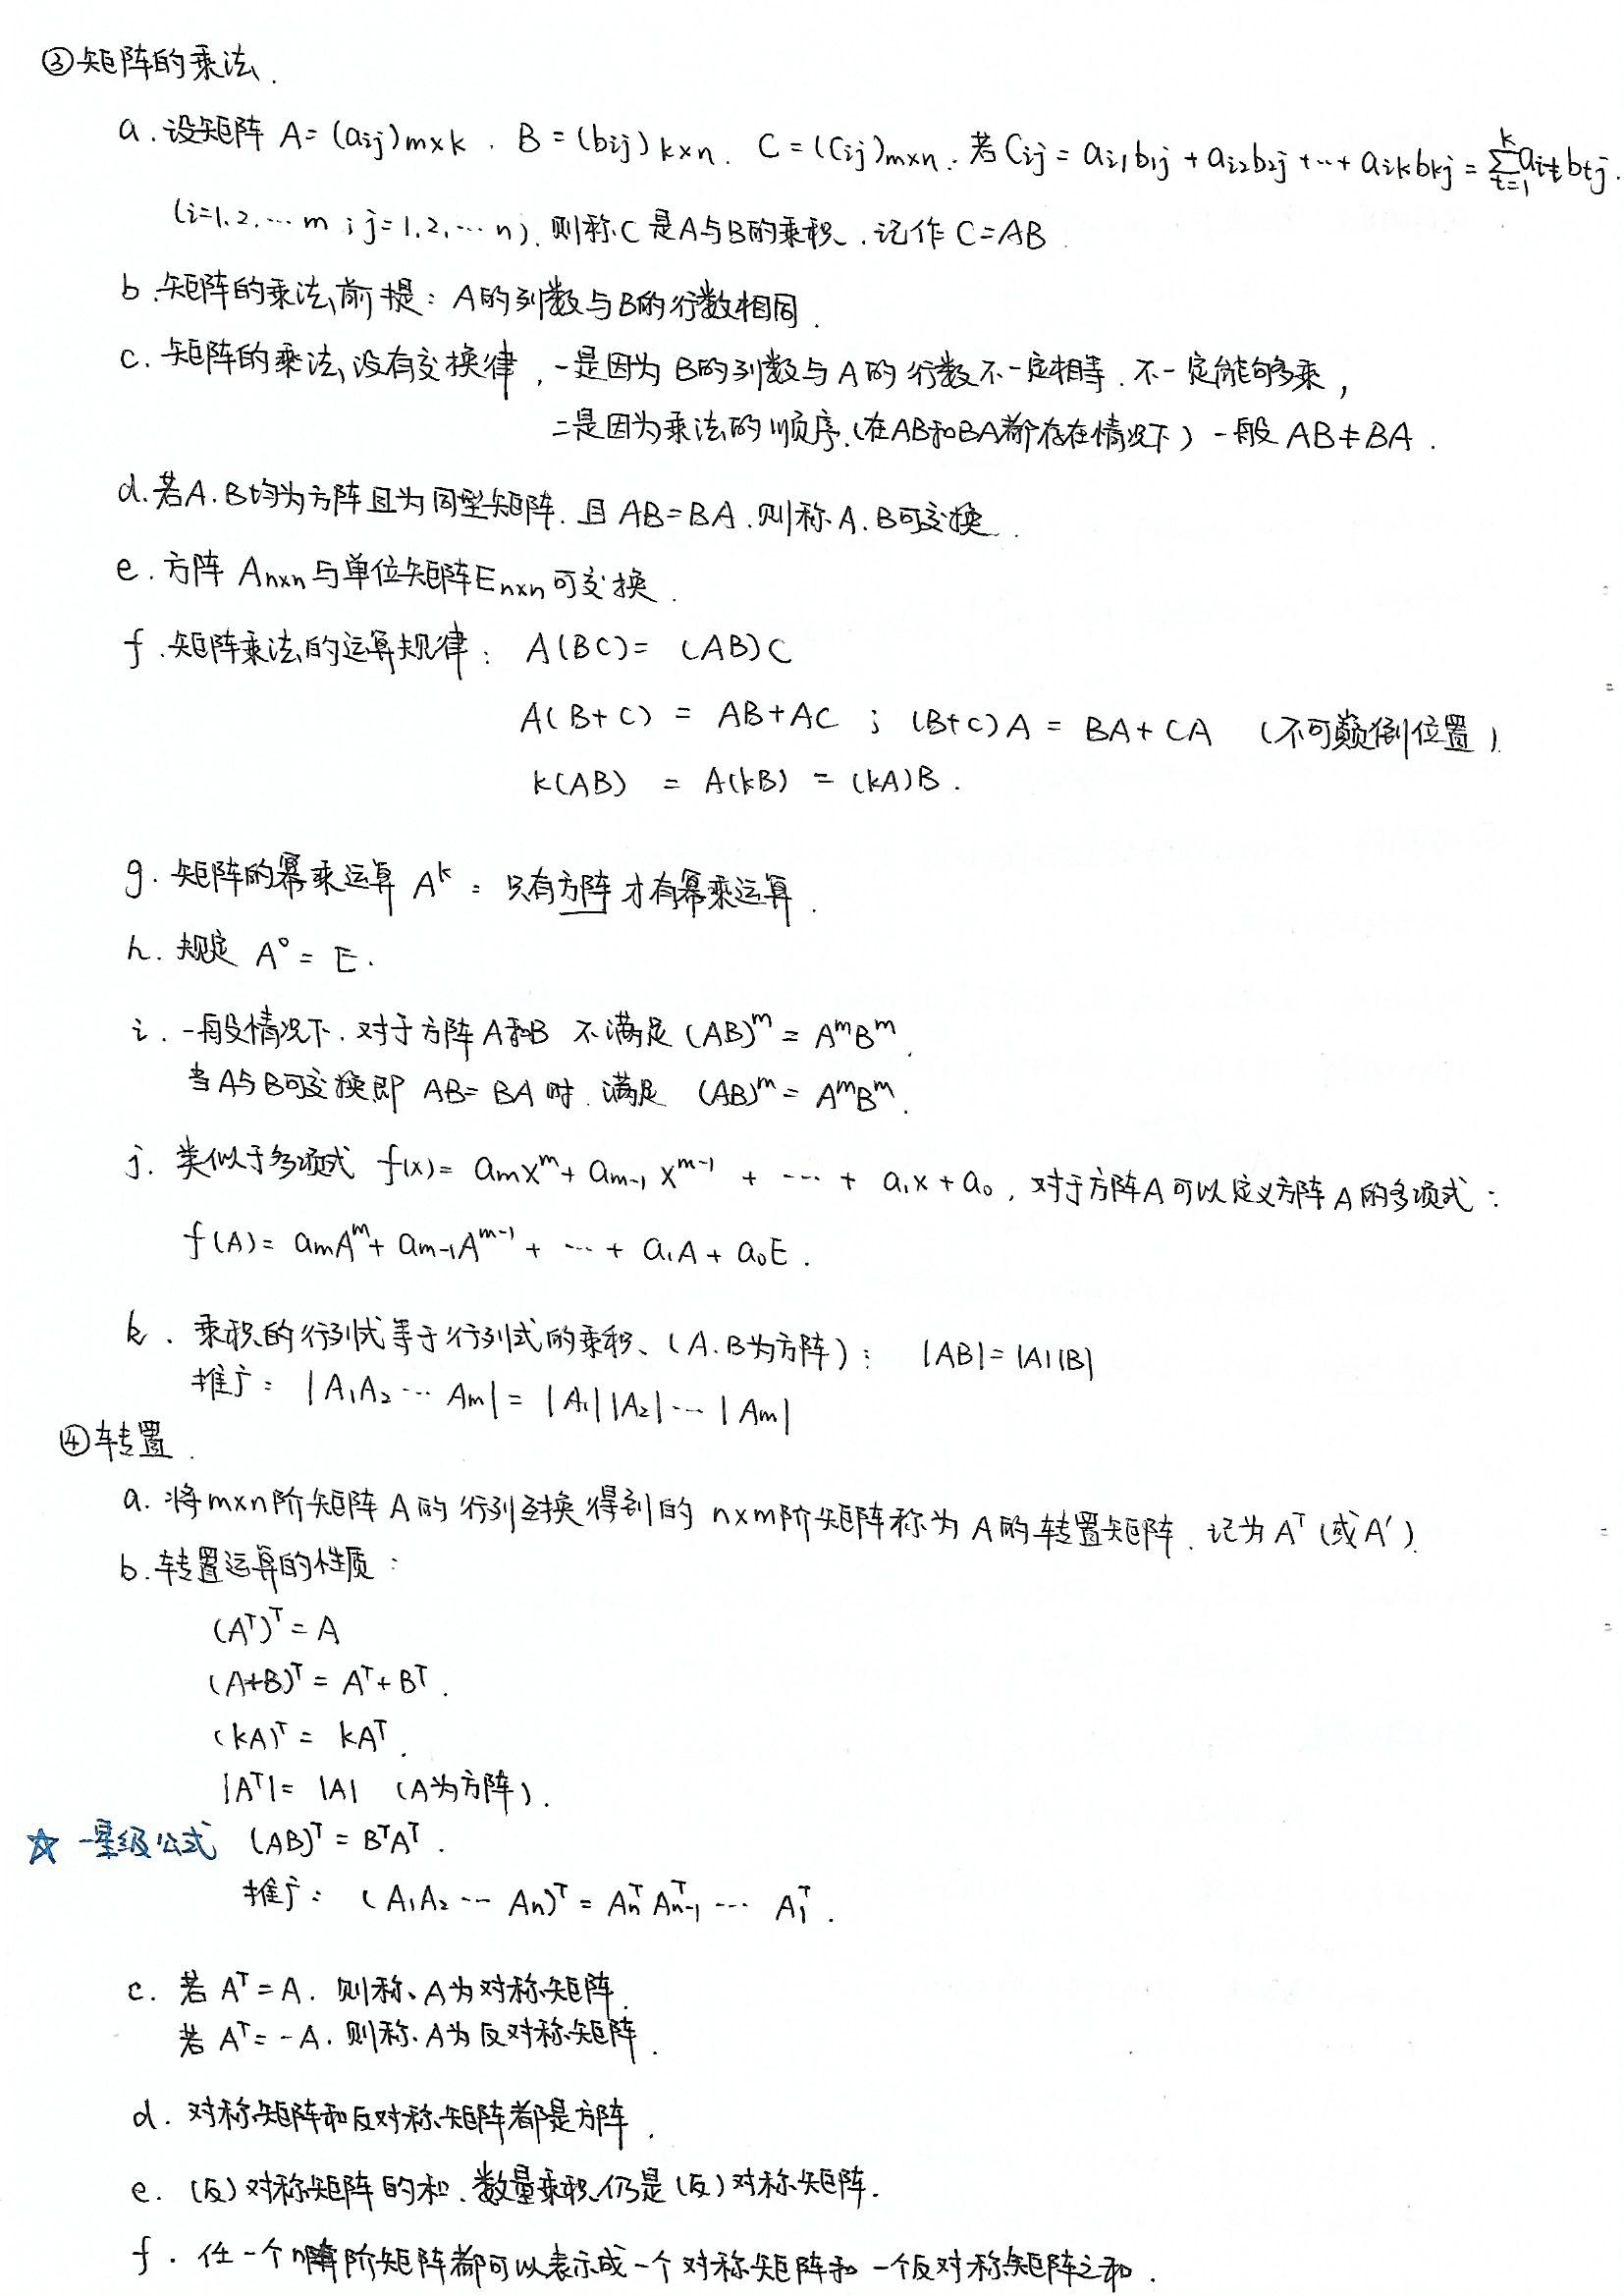 ③矩阵的乘法.
a.设矩阵 A=(aij)m×k . B=(bij)k×n. C=(Cij)m×n. 若Cij = ai1b1j + ai2b2j +…+ aikbkj = ∑(t=1→k) aitbtj.
(i=1.2.…m ; j=1.2.…n). 则称C是A与B的乘积.记作 C=AB.
b.矩阵的乘法前提: A的列数与B的行数相同.
c. 矩阵的乘法没有交换律, 一是因为B的列数与A的行数不一定相等.不一定能够乘,
二是因为乘法的顺序.(在AB和BA都存在情况下)一般 AB≠BA.
d.若A.B均为方阵且为同型矩阵.且 AB=BA.则称A.B可交换.
e.方阵 An×n与单位矩阵En×n可交换.
f.矩阵乘法的运算规律: A(BC)= (AB)C
A(B+C) = AB+AC ; (B+C)A = BA+CA (不可颠倒位置).
k(AB) = A(kB) = (kA)B.
g. 矩阵的幂乘运算 Aᵏ : 只有方阵才有幂乘运算.
h. 规定 A⁰ = E.
i. 一般情况下.对于方阵A和B 不满足 (AB)ᵐ = AᵐBᵐ.
当A与B可交换即 AB=BA时.满足 (AB)ᵐ = AᵐBᵐ.
j. 类似于多项式 f(x)= amxᵐ + am-1 xᵐ⁻¹ + … + a₁x + a₀, 对于方阵A可以定义方阵A的多项式:
f(A)= amAᵐ + am-1Aᵐ⁻¹ + … + a₁A + a₀E.
k. 乘积的行列式等于行列式的乘积、(A.B为方阵): |AB|=|A||B|
推广: |A₁A₂…Am| = |A₁||A₂|…|Am|
④转置.
a. 将m×n阶矩阵A的行列互换得到的 n×m阶矩阵称为A的转置矩阵.记为Aᵀ(或A′).
b.转置运算的性质:
(Aᵀ)ᵀ = A
(A+B)ᵀ = Aᵀ+Bᵀ.
(kA)ᵀ = kAᵀ.
|Aᵀ|= |A| (A为方阵).
☆ 一星级公式 (AB)ᵀ = BᵀAᵀ.
推广: (A₁A₂…An)ᵀ = Anᵀ An-1ᵀ … A₁ᵀ.
c. 若 Aᵀ=A. 则称A为对称矩阵.
若 Aᵀ=-A. 则称A为反对称矩阵.
d. 对称矩阵和反对称矩阵都是方阵.
e. (反)对称矩阵的和、数量乘积仍是(反)对称矩阵.
f. 任一个n阶矩阵都可以表示成一个对称矩阵和一个反对称矩阵之和.